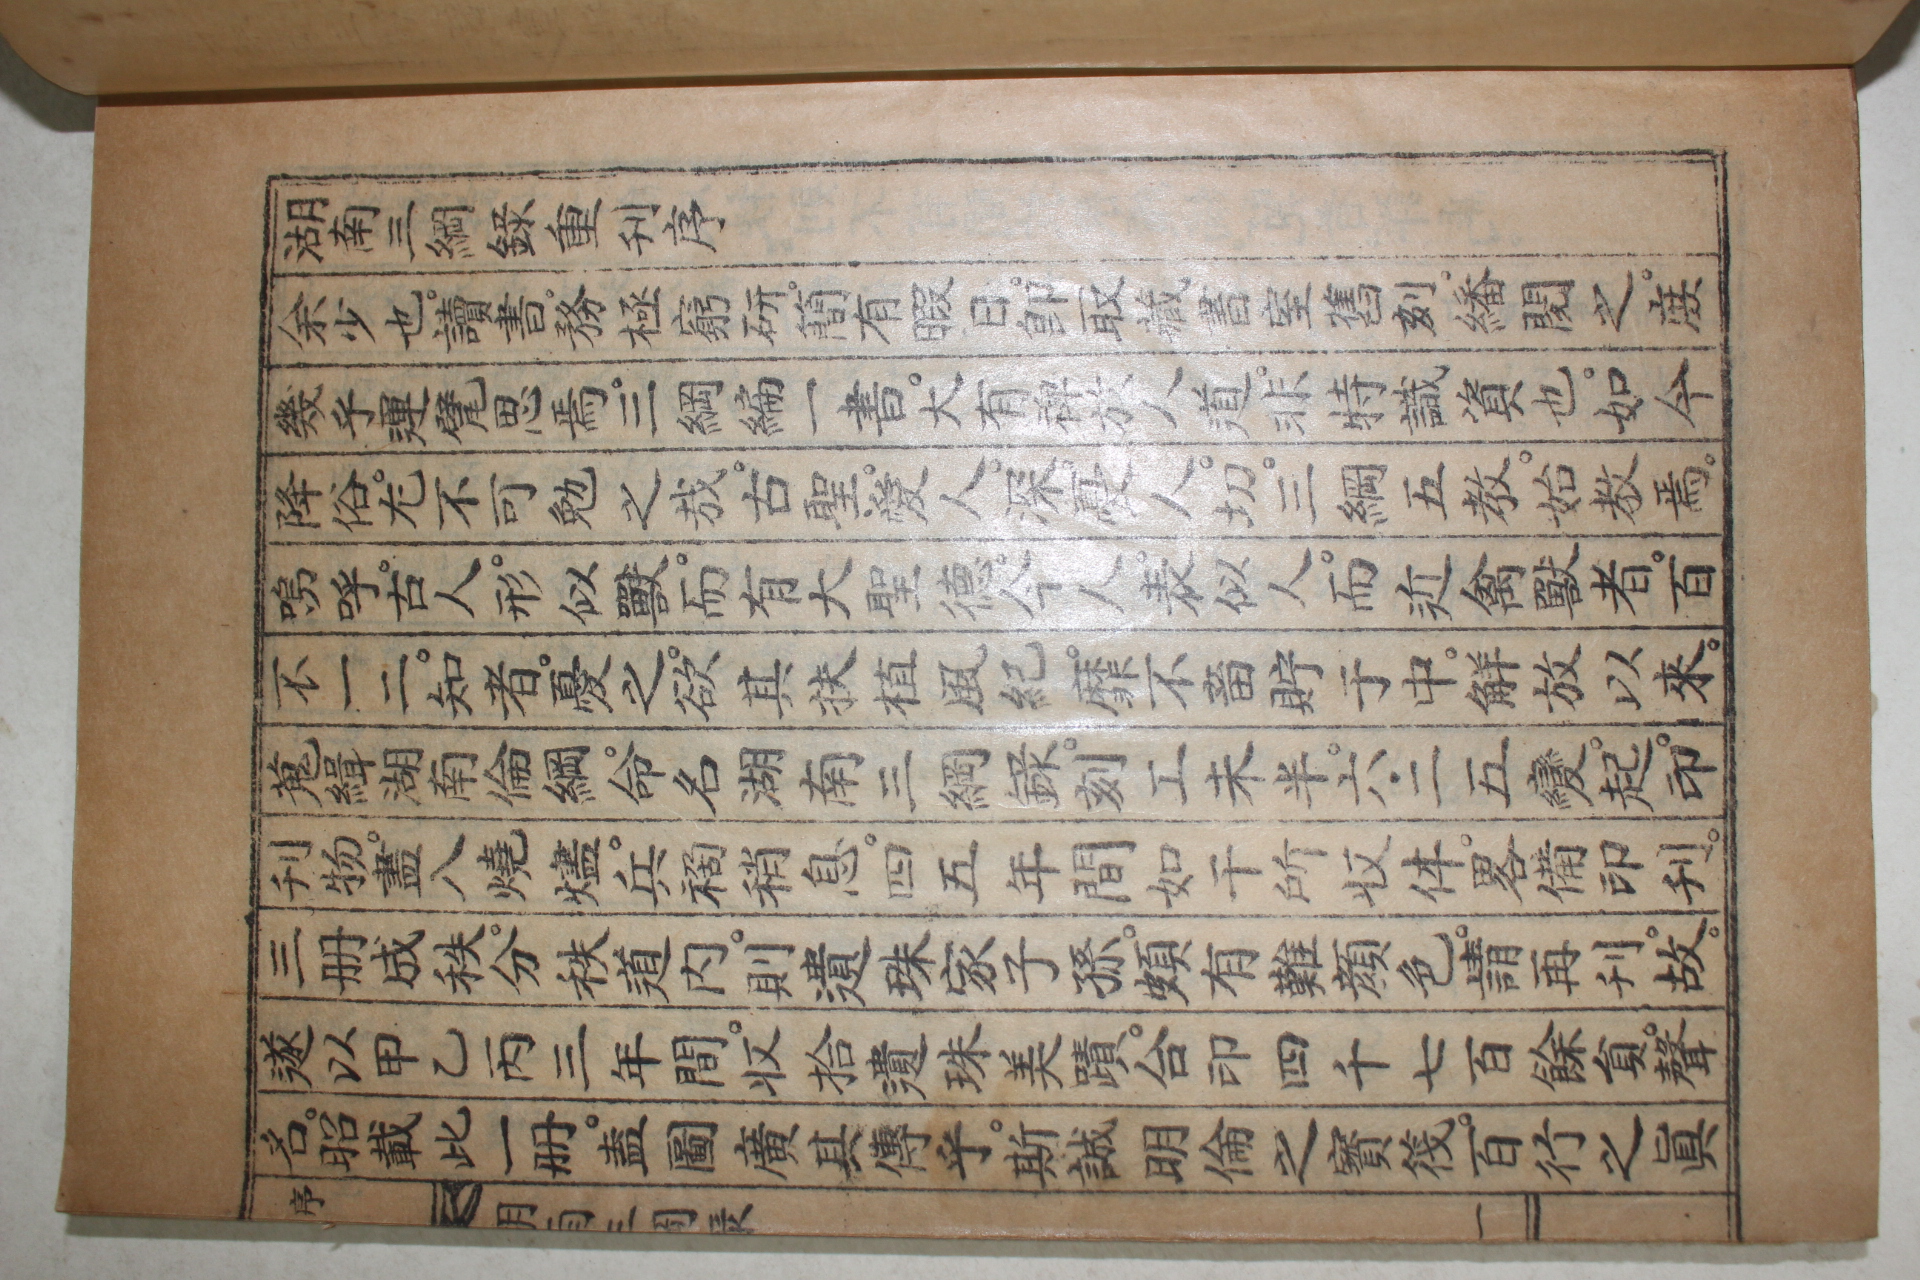 湖南三綱錄重刊序
余少也。讀書。務極窮研。簡有暇日。卽取藏書室舊刻。繙閱之。庶
幾乎運甓思焉。三綱編一書。大有裨於人道。非特識資也。如今
降俗。尤不可勉之哉。古聖。愛人。深。憂人。切。三綱五教。始教焉。
嗚呼。古人。形似獸。而有大聖德。今人。表似人。而近禽獸者。百
不一二。知者。憂之。欲其扶植風紀。靡不畜貯于中。解放以來。
蒐緝湖南倫綱。命名湖南三綱錄。刻工未半。六·二五變。起。印
刊物。盡入燒燼。兵禍稍息。四五年間如干所收体。畧備印刊。
三册成秩。分秩道内。則遺珠家子孫。頗有難顔色。請再刊。故。
遂以甲乙丙三年間。收拾遺珠美蹟。合印四千七百餘負。聲
名。昭載此一册。盍圖廣其傳乎。斯誠明倫之寶筏。百行之眞
序
湖南三綱錄
一